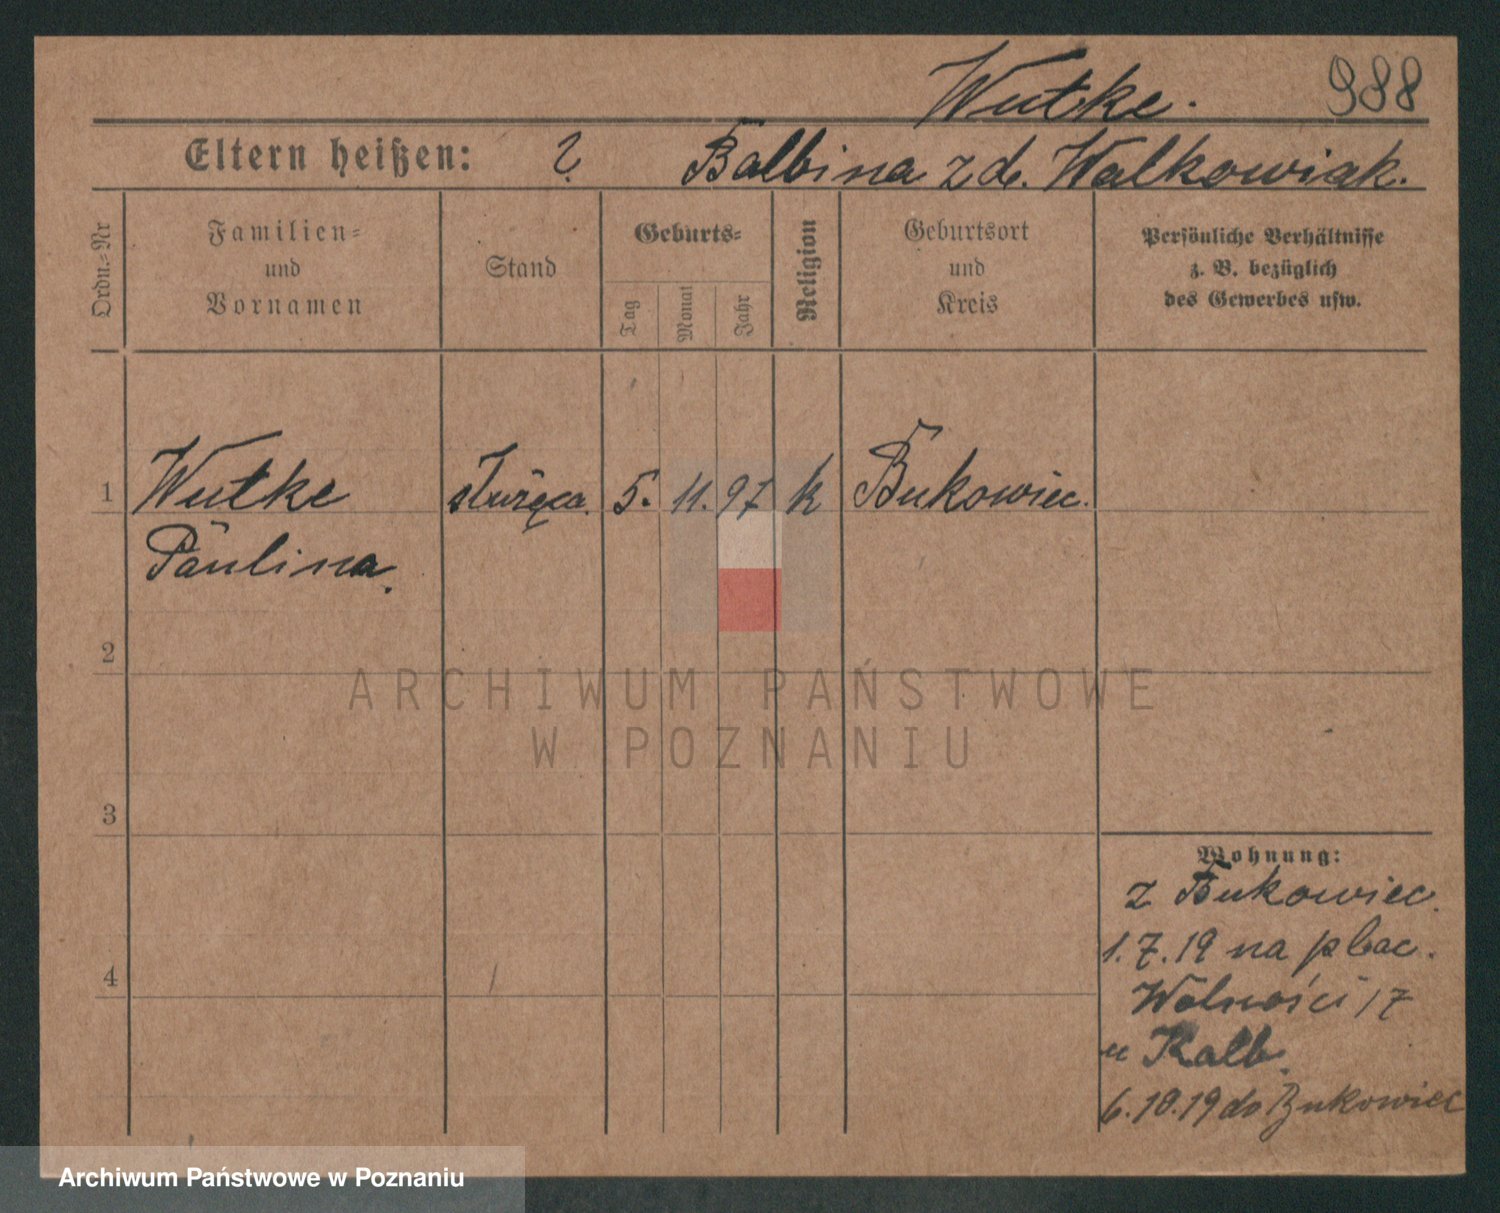 Wutke. 988
Eltern heißen: ? Balbina z d. Walkowiak.
Ordn.-Nr
Familien-
und
Vornamen
Stand
Geburts-
Tag
Monat
Jahr
Religion
Geburtsort
und
Kreis
Persönliche Verhältnisse
z. B. bezüglich
des Gewerbes usw.
1 Wutke służąca. 5. 11. 97 k Bukowiec.
Paulina.
2
ARCHIWUM PAŃSTWOWE
W POZNANIU
3
4
Wohnung:
z Bukowiec.
1.7.19 na plac.
Wolności 17
u Kalb.
6.10.19 do Bukowiec
Archiwum Państwowe w Poznaniu